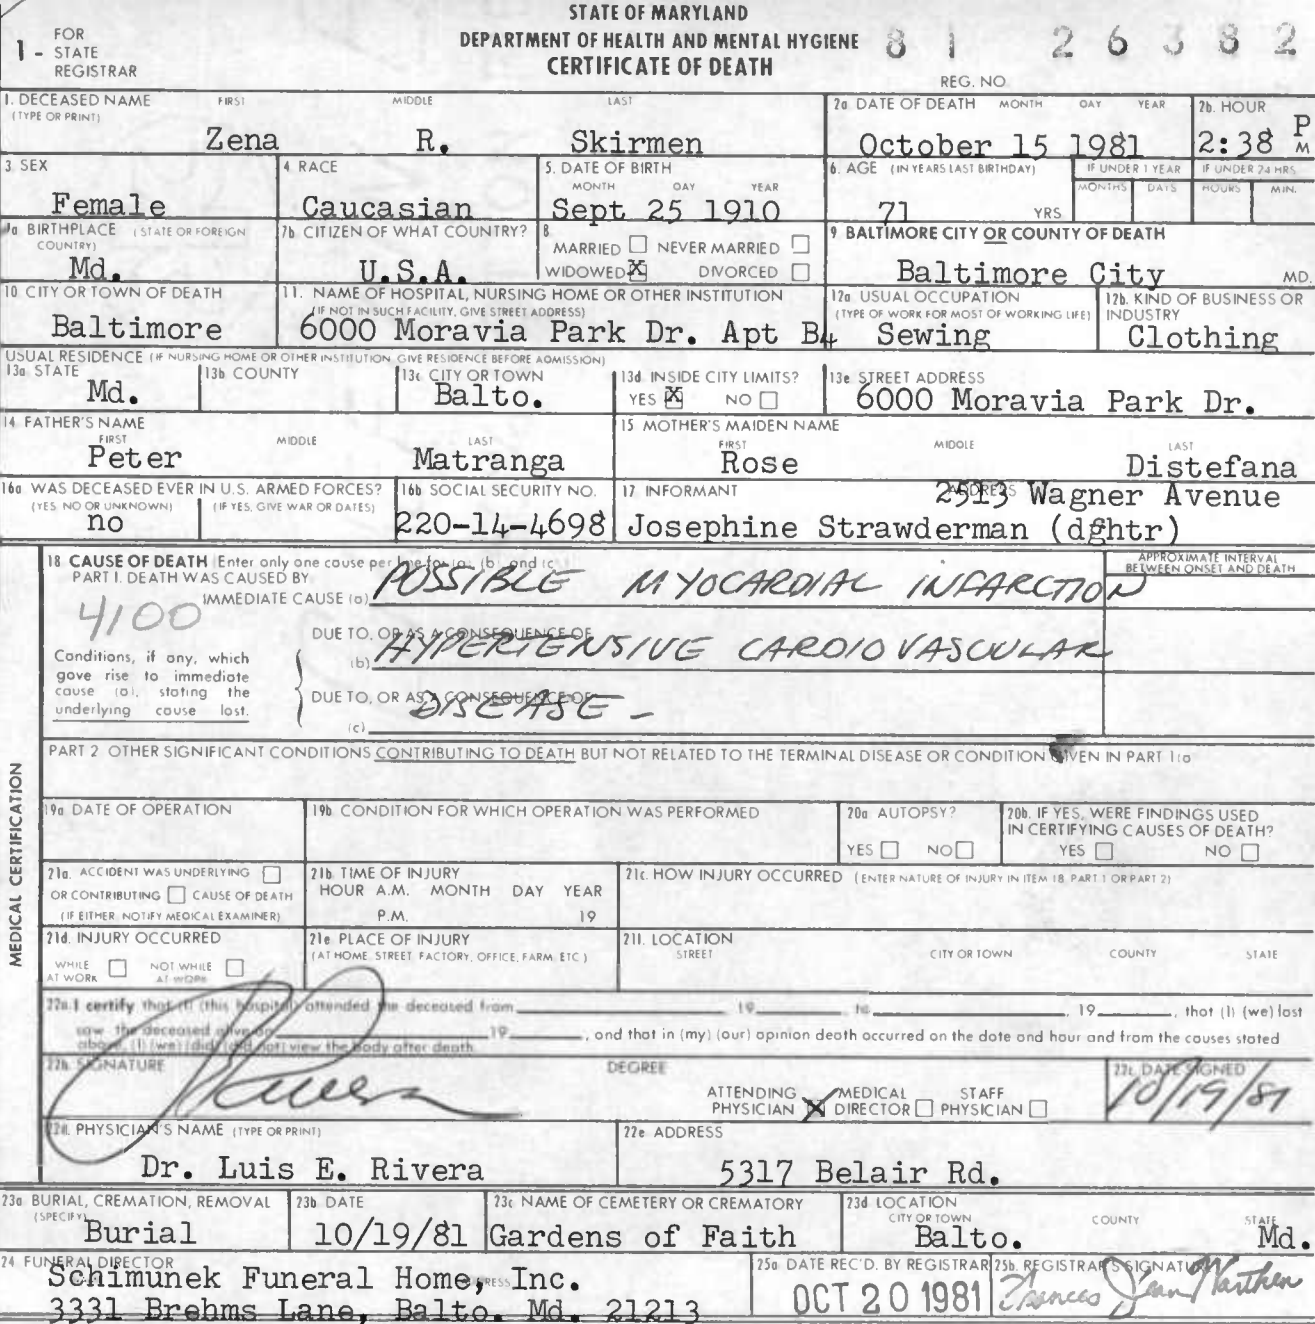 STATE OF MARYLAND
DEPARTMENT OF HEALTH AND MENTAL HYGIENE
CERTIFICATE OF DEATH
1 - FOR STATE REGISTRAR
81 26382
REG. NO.
1. DECEASED NAME (TYPE OR PRINT) FIRST MIDDLE LAST
Zena R. Skirmen
2a DATE OF DEATH MONTH DAY YEAR
October 15 1981
2b. HOUR
2:38 P M
3 SEX
Female
4 RACE
Caucasian
5. DATE OF BIRTH MONTH DAY YEAR
Sept 25 1910
6. AGE (IN YEARS LAST BIRTHDAY)
71 YRS
IF UNDER 1 YEAR MONTHS DAYS
IF UNDER 24 HRS HOURS MIN.
7a BIRTHPLACE (STATE OR FOREIGN COUNTRY)
Md.
7b CITIZEN OF WHAT COUNTRY?
U.S.A.
8 MARRIED NEVER MARRIED
WIDOWED X DIVORCED
9 BALTIMORE CITY OR COUNTY OF DEATH
Baltimore City MD.
10 CITY OR TOWN OF DEATH
Baltimore
11. NAME OF HOSPITAL, NURSING HOME OR OTHER INSTITUTION
(IF NOT IN SUCH FACILITY, GIVE STREET ADDRESS)
6000 Moravia Park Dr. Apt B4
12a USUAL OCCUPATION
(TYPE OF WORK FOR MOST OF WORKING LIFE)
Sewing
12b. KIND OF BUSINESS OR INDUSTRY
Clothing
USUAL RESIDENCE (IF NURSING HOME OR OTHER INSTITUTION GIVE RESIDENCE BEFORE ADMISSION)
13a STATE
Md.
13b COUNTY
13c CITY OR TOWN
Balto.
13d INSIDE CITY LIMITS?
YES X NO
13e STREET ADDRESS
6000 Moravia Park Dr.
14 FATHER'S NAME FIRST MIDDLE LAST
Peter Matranga
15 MOTHER'S MAIDEN NAME FIRST MIDDLE LAST
Rose Distefana
16a WAS DECEASED EVER IN U.S. ARMED FORCES?
(YES, NO OR UNKNOWN) (IF YES, GIVE WAR OR DATES)
no
16b SOCIAL SECURITY NO.
220-14-4698
17 INFORMANT ADDRESS
2513 Wagner Avenue
Josephine Strawderman (dghtr)
MEDICAL CERTIFICATION
18 CAUSE OF DEATH (Enter only one cause per line for (a), (b), and (c))
APPROXIMATE INTERVAL BETWEEN ONSET AND DEATH
PART I. DEATH WAS CAUSED BY
IMMEDIATE CAUSE (a) POSSIBLE MYOCARDIAL INFARCTION
4100
DUE TO, OR AS A CONSEQUENCE OF
(b) HYPERTENSIVE CARDIOVASCULAR
DUE TO, OR AS A CONSEQUENCE OF
DISEASE -
(c)
Conditions, if any, which
gave rise to immediate
cause (a), stating the
underlying cause last.
PART 2 OTHER SIGNIFICANT CONDITIONS CONTRIBUTING TO DEATH BUT NOT RELATED TO THE TERMINAL DISEASE OR CONDITION GIVEN IN PART 1(a
19a DATE OF OPERATION
19b CONDITION FOR WHICH OPERATION WAS PERFORMED
20a AUTOPSY?
YES NO
20b. IF YES, WERE FINDINGS USED
IN CERTIFYING CAUSES OF DEATH?
YES NO
21a. ACCIDENT WAS UNDERLYING
OR CONTRIBUTING CAUSE OF DEATH
(IF EITHER, NOTIFY MEDICAL EXAMINER)
21b TIME OF INJURY
HOUR A.M. MONTH DAY YEAR
P.M. 19
21c. HOW INJURY OCCURRED (ENTER NATURE OF INJURY IN ITEM 18 PART 1 OR PART 2)
21d. INJURY OCCURRED
WHILE AT WORK NOT WHILE AT WORK
21e PLACE OF INJURY
(AT HOME STREET, FACTORY, OFFICE, FARM, ETC.)
21f. LOCATION
STREET CITY OR TOWN COUNTY STATE
22a. I certify that (I) (this hospital) attended the deceased from 19 to 19 , that (I) (we) last
saw the deceased alive on 19 , and that in (my) (our) opinion death occurred on the date and hour and from the causes stated
above, (I) (we) (did) (did not) view the body after death.
22b. SIGNATURE
Rivera
DEGREE
ATTENDING PHYSICIAN X MEDICAL DIRECTOR STAFF PHYSICIAN
22c. DATE SIGNED
10/19/81
22d. PHYSICIAN'S NAME (TYPE OR PRINT)
Dr. Luis E. Rivera
22e ADDRESS
5317 Belair Rd.
23a BURIAL, CREMATION, REMOVAL (SPECIFY)
Burial
23b DATE
10/19/81
23c NAME OF CEMETERY OR CREMATORY
Gardens of Faith
23d LOCATION CITY OR TOWN COUNTY STATE
Balto. Md.
24 FUNERAL DIRECTOR ADDRESS
Schimunek Funeral Home, Inc.
3331 Brehms Lane, Balto. Md. 21213
25a DATE REC'D. BY REGISTRAR
OCT 20 1981
25b. REGISTRAR'S SIGNATURE
Frances Jean Warthen